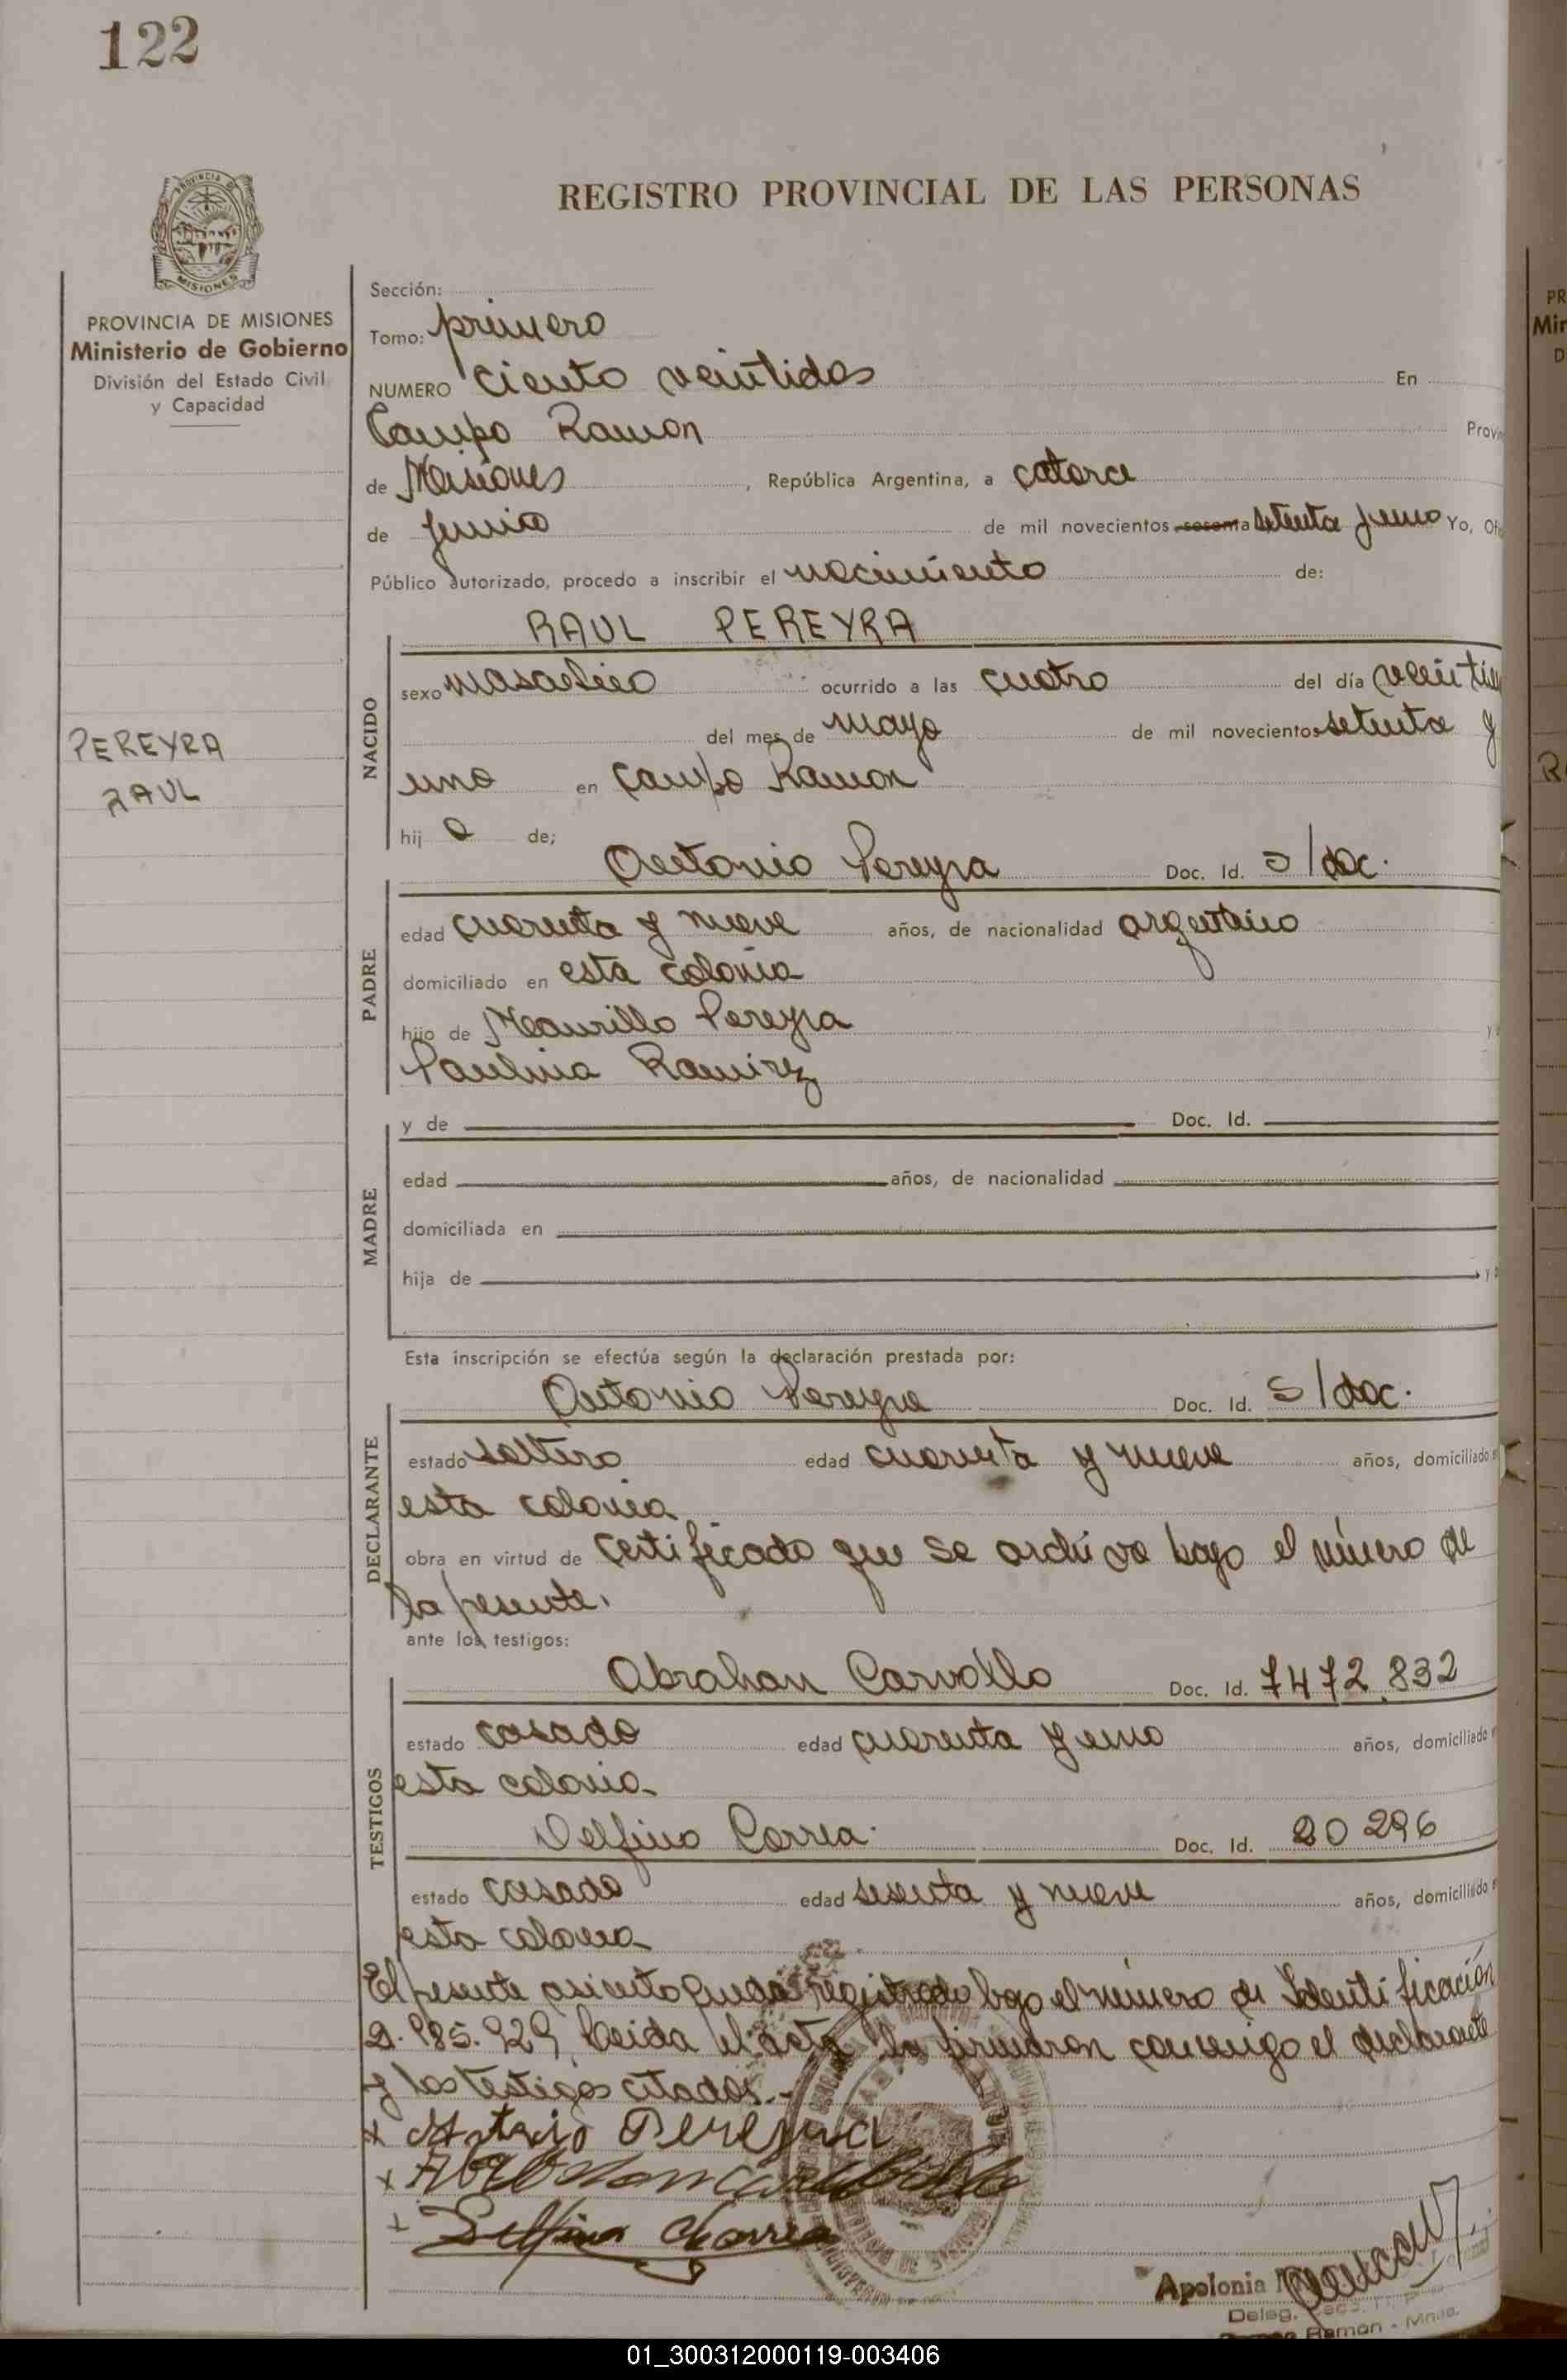 122
REGISTRO PROVINCIAL DE LAS PERSONAS
PROVINCIA DE MISIONES
Ministerio de Gobierno
División del Estado Civil
y Capacidad
PEREYRA
RAUL
Sección:
Tomo: primero
NUMERO ciento veintidos En
Campo Ramon
de Misiones, República Argentina, a catorce
de Junio de mil novecientos sesenta setenta y uno Yo,
Público autorizado, procedo a inscribir el nacimiento de:
RAUL PEREYRA
NACIDO
sexo masculino ocurrido a las cuatro del día
del mes de mayo de mil novecientos setenta y
uno en Campo Ramon
hij o de;
Antonio Pereyra Doc. Id. s/doc.
PADRE
edad cuarenta y nueve años, de nacionalidad argentino
domiciliado en esta colonia
hijo de Maurillo Pereyra y
Paulina Ramirez
MADRE
y de Doc. Id.
edad años, de nacionalidad
domiciliada en
hija de y
Esta inscripción se efectúa según la declaración prestada por:
Antonio Pereyra Doc. Id. s/doc.
DECLARANTE
estado soltero edad cuarenta y nueve años, domiciliado
esta colonia
obra en virtud de certificado que se archiva bajo el número de
la presente.
ante los testigos:
Abrahan Carvallo Doc. Id. 7472.832
TESTIGOS
estado casado edad cuarenta y uno años, domiciliado
esta colonia
Delfino Correa. Doc. Id. 20 296
estado casado edad sesenta y nueve años, domiciliado
esta colonia
El presente asiento queda registrado bajo el número de Identificación
21.985.929, Leida el acta la firmaron conmigo el declarante
y los testigos citados.-
x Antonio Pereyra
x
+ Delfino Correa
Apolonia
Deleg.
Ramón - Mnes.
01_300312000119-003406